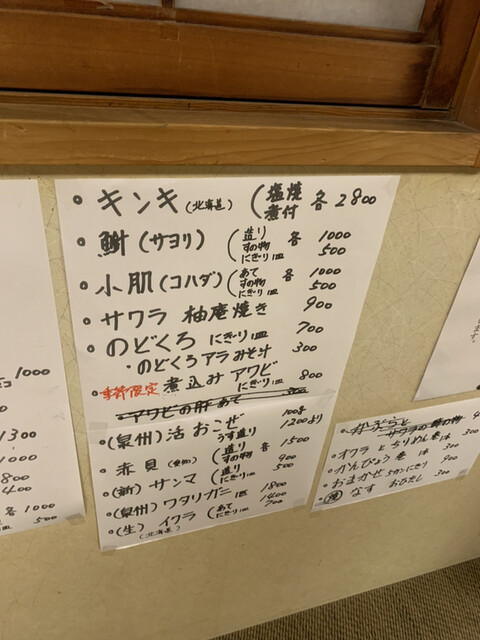 1000
1300
1000
800
400
各 1000
500
・キンキ(北海道) (塩焼 各 2800
煮付
・鱵(サヨリ) (造り 各 1000
すの物
にぎり一皿 500
・小肌(コハダ) (あて 各 1000
すの物
にぎり一皿 500
・サワラ 柚庵焼き 900
・のどくろ にぎり一皿 700
・のどくろアラみそ汁 300
・季節限定 煮込み アワビ
にぎり一皿 800
・アワビの肝あて 300
・(泉州) 活 おこぜ 100g
うす造り 1200より
・赤貝 (造り 各 1500
すの物
にぎり一皿 900
・(新) サンマ (造り
にぎり一皿 500
・(泉州) ワタリガニ 一匹 1800
・(生) イクラ (あて 1400
(北海道) にぎり一皿 700
・かぶらと
サワラの酢の物 4
・オクラとちりめん 300
・かんぴょう巻 300
・おまかせ 5カンにぎり 800
・なす おひたし 300
ます。